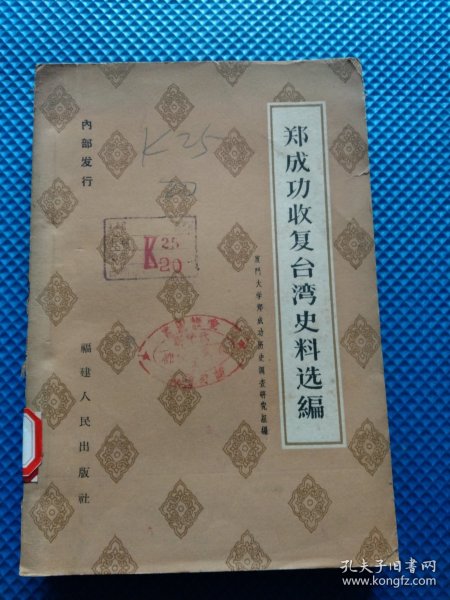 郑成功收复台湾史料选编
厦门大学郑成功历史调查研究组编
內部发行
K25
K 25
20
福建人民出版社
孔夫子旧书网
www.kongfz.com